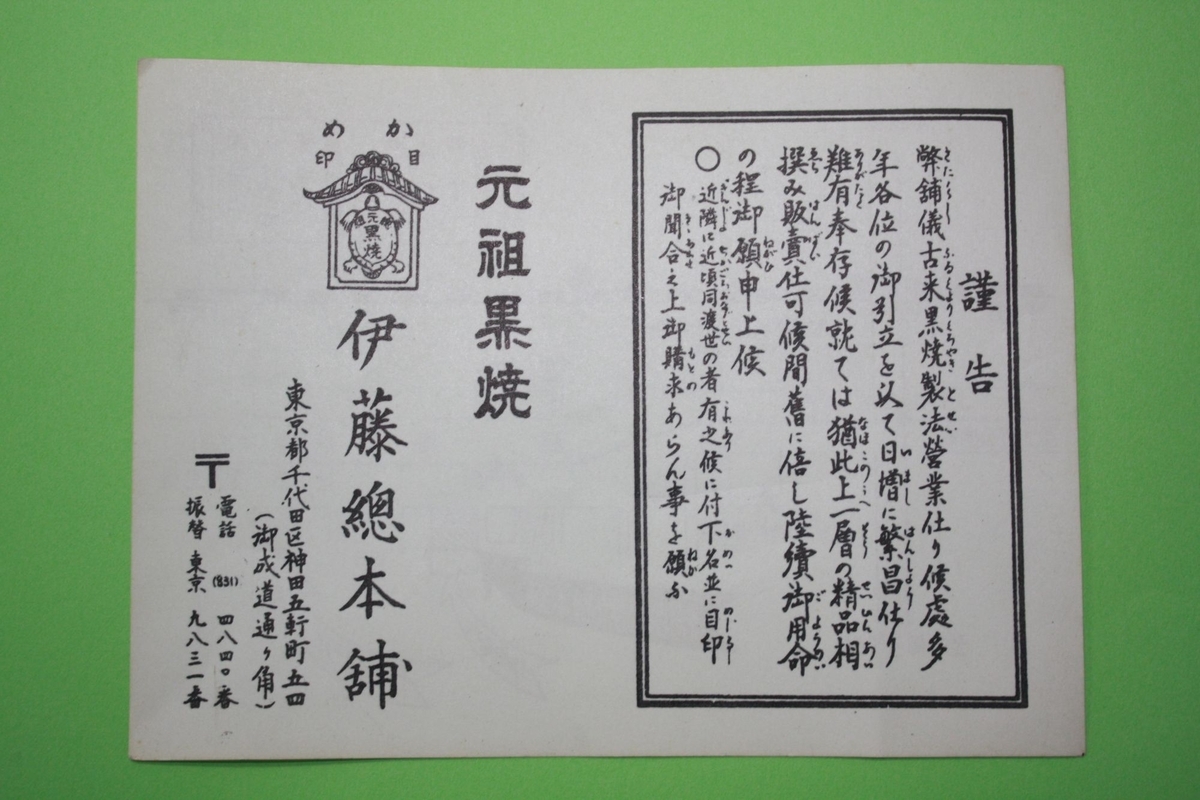 謹告
弊舗儀古来黒焼製法營業仕り候處多
年各位の御引立を以て日増に繁昌仕り
難有奉存候就ては猶此上一層の精品相
撰み販賣仕可候間舊に倍し陸續御用命
の程御願申上候
○近隣に近頃同渡世の者有之候に付下名並に目印
御聞合之上御購求あらん事を願ふ
元祖黒焼
かめ
目印
元祖
黒焼
伊藤總本舗
東京都千代田区神田五軒町五四
(御成道通り角)
〒
電話 (831) 四八四〇番
振替 東京 九八三一番